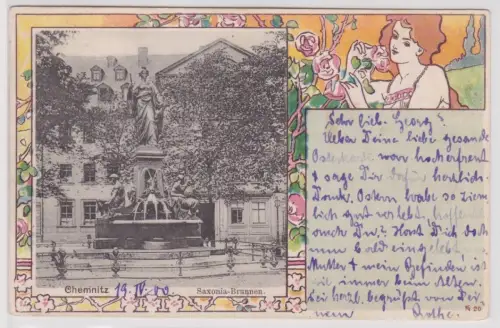 Chemnitz 19. IV. 00
Saxonia-Brunnen.
Sehr lieb. Georg!
Ueber Deine liebe gesandte
Osterkarte war hocherfreut
& sage Dir dafür herzlich.
Dank. Ostern habe so ziem
lich gut verlebt, hoffentl.
auch Du? Hast Dich doch
nun bald eingelebt
Mutter & mein Befinden ist
immer beim Alten.
Sei herzl. begrüßt von Dei
nem